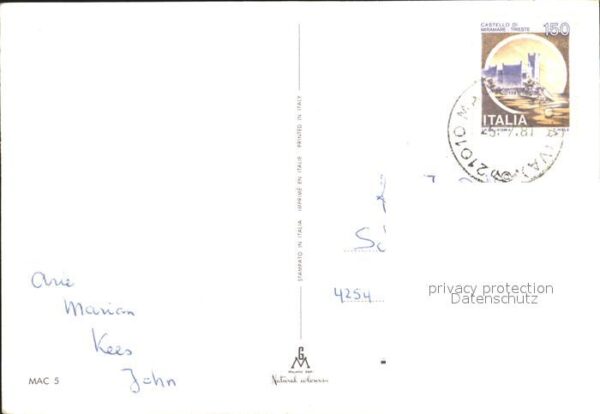 CASTELLO DI
MIRAMARE TRIESTE
150
ITALIA
21010 M
(VA)
STAMPATO IN ITALIA IMPRIMÉ EN ITALIE PRINTED IN ITALY
4254
privacy protection
Datenschutz
Arie
Marian
Kees
John
MAC 5
Natural colours